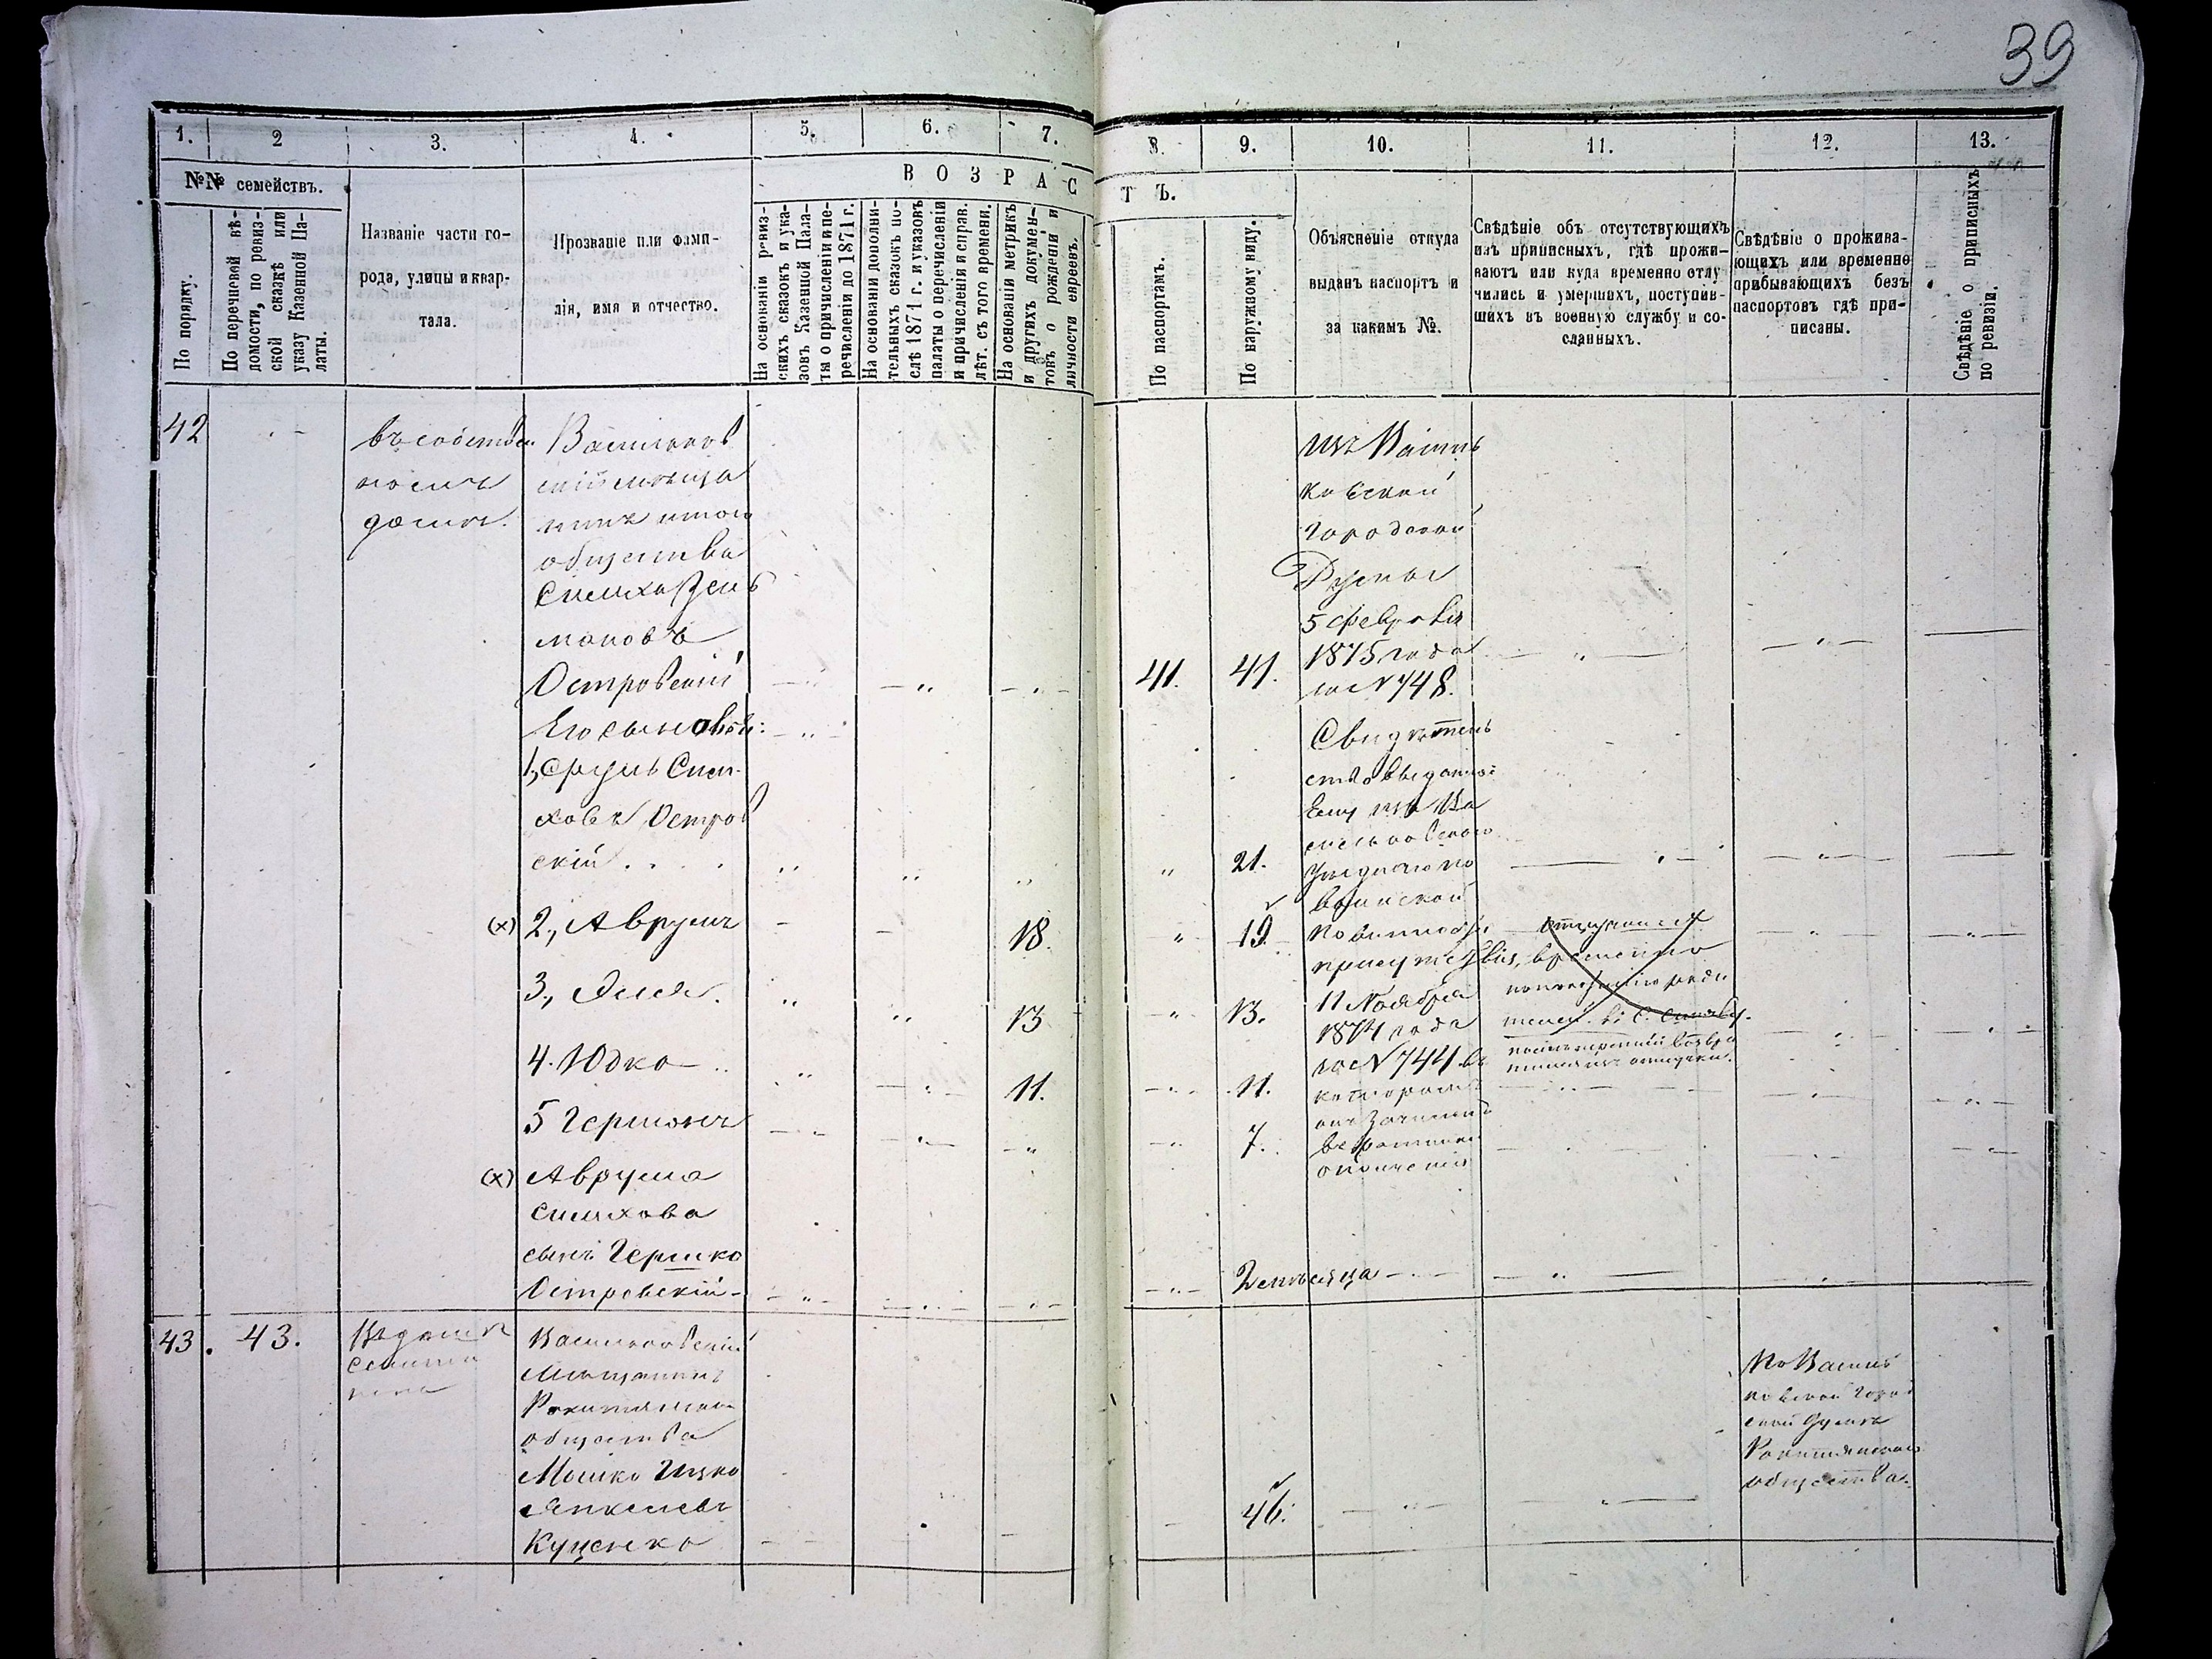 39
1.
2
3.
4.
5.
6.
7.
8.
9.
10.
11.
12.
13.
№№ семействъ.
ВОЗРАС
ТЪ.
По порядку.
По перечневой вѣ-
домости, по ревиз-
ской сказкѣ или
указу Казенной Па-
латы.
Названіе части го-
рода, улицы и квар-
тала.
Прозваніе или фами-
лія, имя и отчество.
На основаніи ревиз-
скихъ сказокъ и ука-
зовъ Казенной Пала-
ты о причисленіи и пе-
речисленіи до 1871 г.
На основаніи дополни-
тельныхъ сказокъ по-
слѣ 1871 г. и указовъ
палаты о перечисленіи
и причисленія и справ.
лѣт. съ того времени.
На основаніи метрикъ
и другихъ докумен-
товъ о рожденіи и
личности евреевъ.
По паспортамъ.
По наружному виду.
Объясненіе откуда
выданъ паспортъ и
за какимъ №.
Свѣдѣніе объ отсутствующихъ
изъ приписныхъ, гдѣ прожи-
ваютъ или куда временно отлу
чились и умершихъ, поступив-
шихъ въ военную службу и со-
сланныхъ.
Свѣдѣніе о прожива-
ющихъ или временно
прибывающихъ безъ
паспортовъ гдѣ при-
писаны.
Свѣдѣніе о приписныхъ
по ревизіи.
42
въ собствен
номъ
домѣ.
Васильков
скій мѣща
нинъ
общества
Симха Зель
мановъ
Островскій
41.
41.
Изъ Василь
ковской
Городской
Думы
5 Февраля
1875 года
за № 748.
Его сыновья:
1, Сруль Сим-
ховъ Остров
скій
21.
Свидѣтель
ство выданное
Ему изъ Ва
сильковскаго
Уѣзднаго по
воинской
повинности
присутствія,
11 Ноября
1874 года
за № 744 въ
которомъ
онъ зачисленъ
въ ратники
ополченія
(х) 2, Аврумъ
18.
19.
временно
3,
13
13.
4. Юдко
11.
11.
5 Гершонъ
7.
(х) Аврума
Симхова
сынъ Гершко
Островскій
2 мѣсяца
43.
43.
Васильковскій
Мѣщанинъ
Рокитянскаго
общества
Мошко Ицко
Янкелевъ
Куценко
46.
По Василь
ковской Город
ской Думѣ
Рокитянскаго
общества.